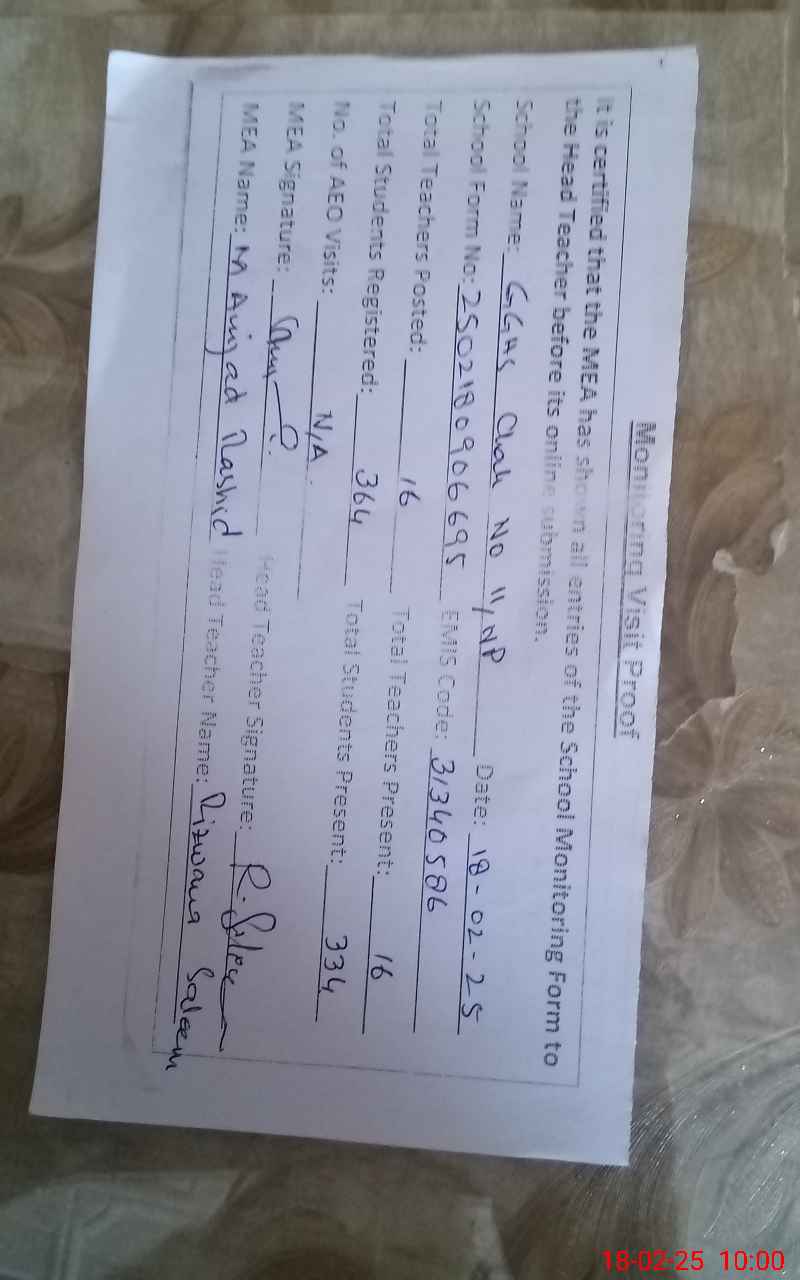 Monitoring Visit Proof
It is certified that the MEA has shown all entries of the School Monitoring Form to
the Head Teacher before its online submission.
School Name: GGHS Chak No 11/NP Date: 18-02-25
School Form No: 2502180906695 EMIS Code: 31340586
Total Teachers Posted: 16 Total Teachers Present: 16
Total Students Registered: 364 Total Students Present: 334
No. of AEO Visits: N/A
MEA Signature: Head Teacher Signature: R. Saleem
MEA Name: M Amjad Rashid Head Teacher Name: Rizwana Saleem
18-02-25 10:00